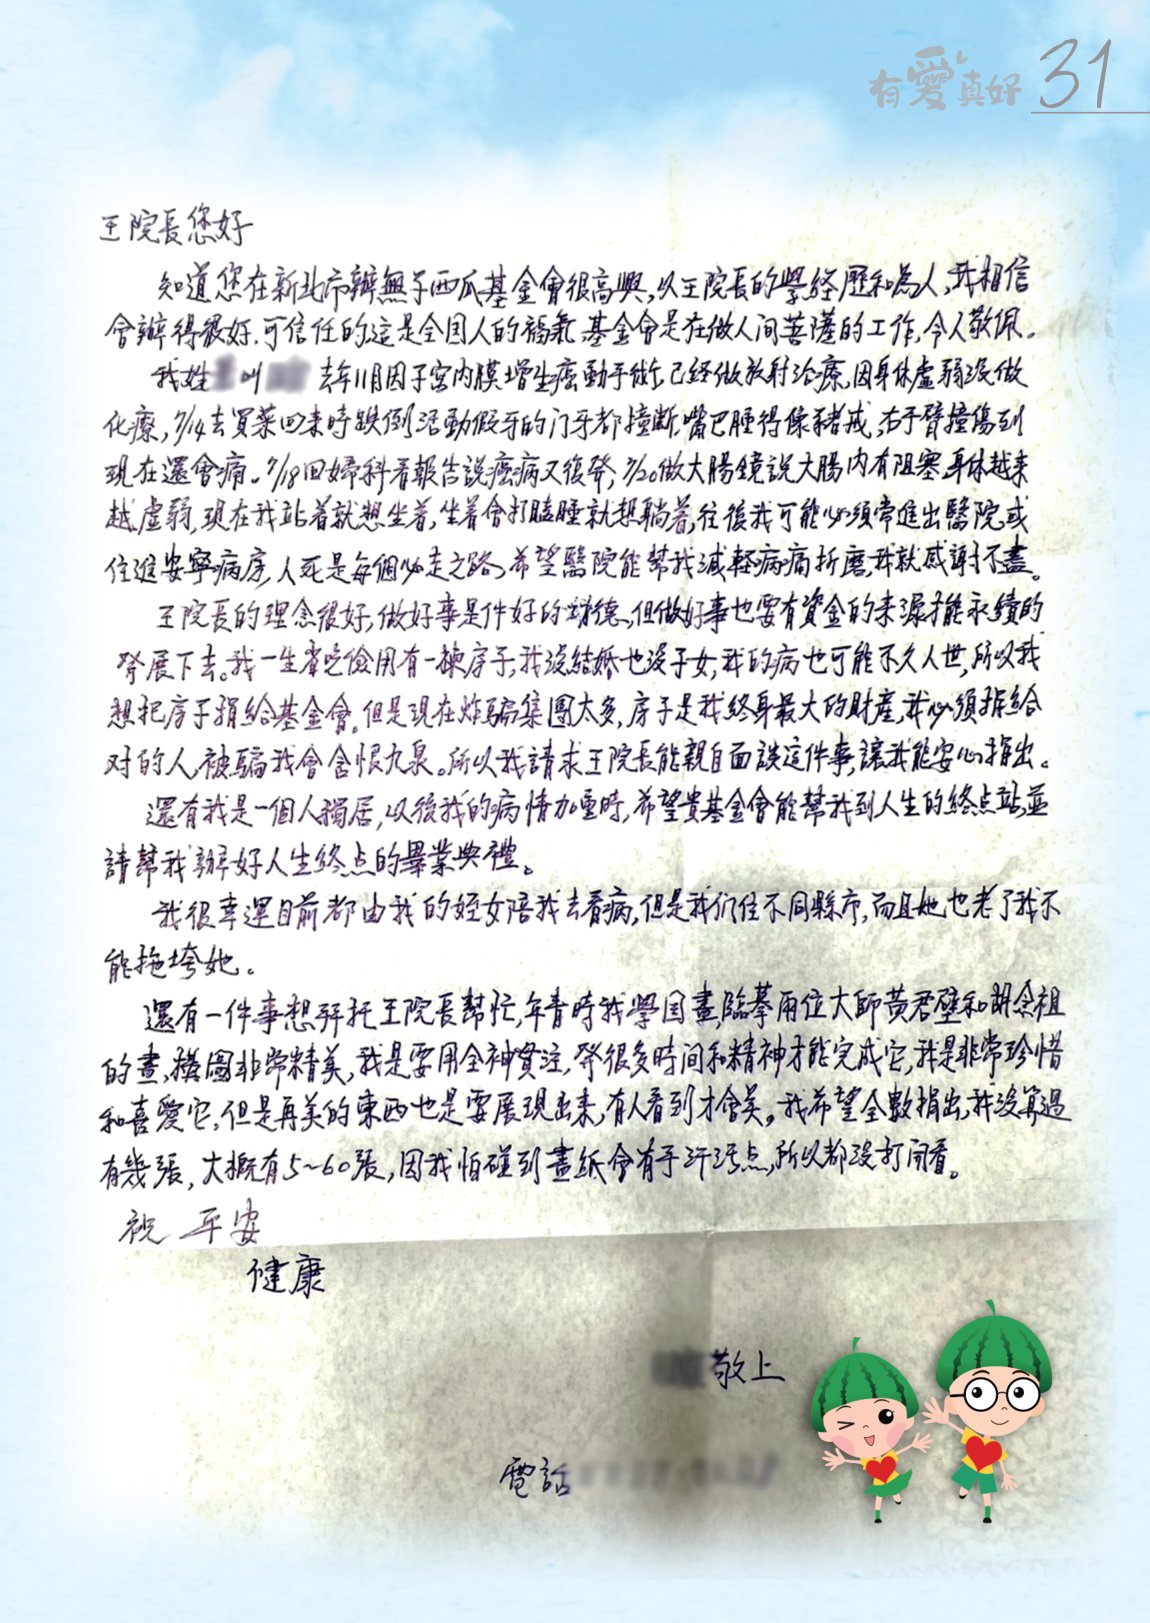 有愛真好 31
王院長您好
知道您在新北市辦無子西瓜基金會很高興,以王院長的學經歷和為人,我相信
會辦得很好.可信任的,這是全国人的福氣.基金會是在做人间菩薩的工作,令人敬佩。
我姓 叫 去年11月因子宮内膜增生癌動手術,已經做放射治療,因身体虚弱没做
化療,7/14去買菜回来時跌倒活動假牙的门牙都撞断,嘴巴腫得像豬戒,右手臂撞傷到
現在還會痛。7/18回婦科看報告說癌病又復発,7/20做大腸鏡說大腸内有阻塞,身体越来
越虚弱,現在我站着就想坐着,坐着會打瞌睡就想躺着,往後我可能必須常進出醫院或
住進安寧病房,人死是每個必走之路,希望醫院能幫我減輕病痛折磨,我就感謝不盡。
王院長的理念很好,做好事是件好的功德,但做好事也要有資金的来源才能永續的
発展下去。我一生省吃儉用有一棟房子,我没結婚也没子女,我的病也可能不久人世,所以我
想把房子捐給基金會。但是現在炸騙集團太多,房子是我終身最大的財產,我必須捐給
对的人,被騙我會含恨九泉。所以我請求王院長能親自面談這件事,讓我能安心捐出。
還有我是一個人獨居,以後我的病情加重時,希望貴基金會能幫我到人生的終点站,並
請幫我辦好人生終点的畢業典禮。
我很幸運目前都由我的姪女陪我去看病,但是我们住不同縣市,而且她也老了我不
能拖垮她。
還有一件事想拜托王院長幫忙,年青時我學国畫,臨摹兩位大師黃君璧和胡念祖
的畫,構圖非常精美,我是要用全神貫注,発很多時间和精神才能完成它,我是非常珍惜
和喜愛它,但是再美的東西也是要展現出来,有人看到才會美。我希望全數捐出,我没算過
有幾張,大概有5~60張,因我怕碰到畫紙會有手汗污点,所以都没打開看。
祝 平安
健康
敬上
電話